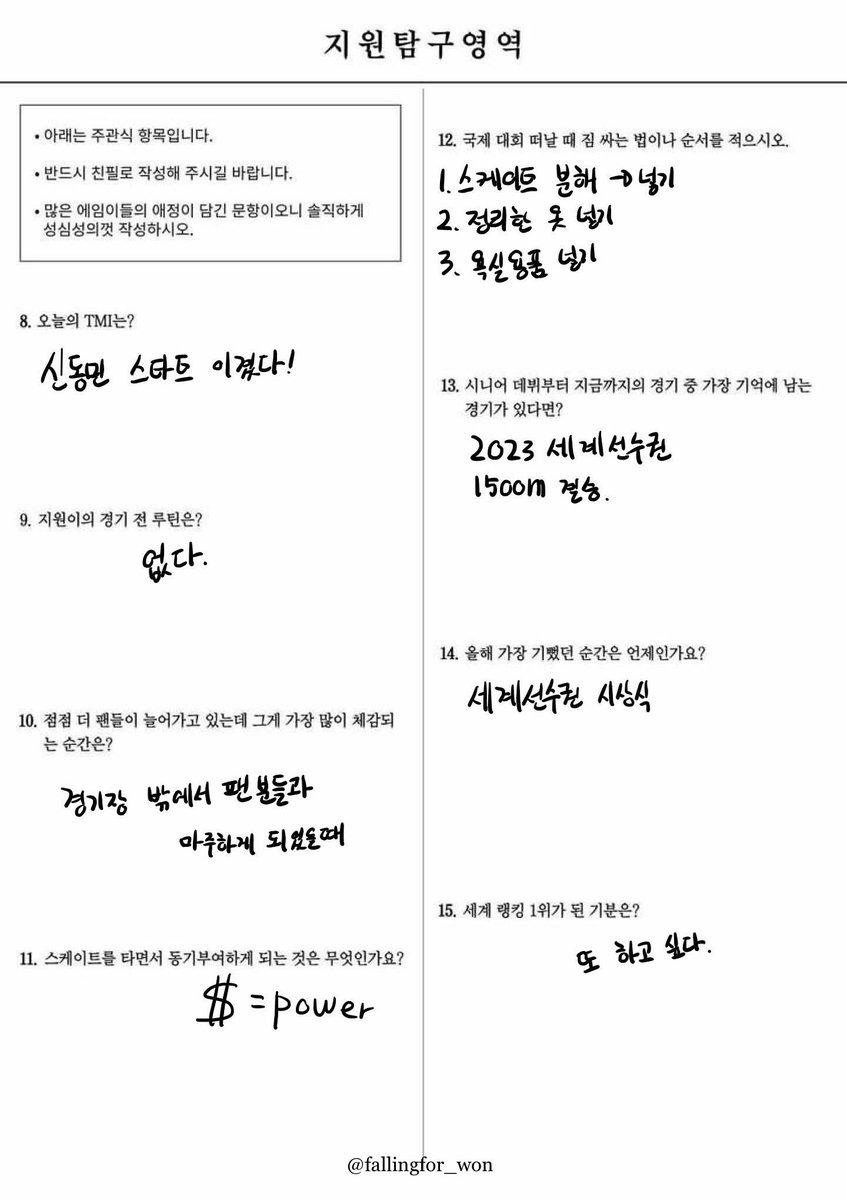 지원탐구영역
• 아래는 주관식 항목입니다.
• 반드시 친필로 작성해 주시길 바랍니다.
• 많은 에임이들의 애정이 담긴 문항이오니 솔직하게
성심성의껏 작성하시오.
8. 오늘의 TMI는?
신동민 스타트 이겼다!
9. 지원이의 경기 전 루틴은?
없다.
10. 점점 더 팬들이 늘어가고 있는데 그게 가장 많이 체감되
는 순간은?
경기장 밖에서 팬분들과
마주하게 되었을때
11. 스케이트를 타면서 동기부여하게 되는 것은 무엇인가요?
$ = power
12. 국제 대회 떠날 때 짐 싸는 법이나 순서를 적으시오.
1. 스케이트 분해 → 넣기
2. 정리한 옷 넣기
3. 욕실용품 넣기
13. 시니어 데뷔부터 지금까지의 경기 중 가장 기억에 남는
경기가 있다면?
2023 세계선수권
1500m 결승.
14. 올해 가장 기뻤던 순간은 언제인가요?
세계선수권 시상식
15. 세계 랭킹 1위가 된 기분은?
또 하고 싶다.
@fallingfor_won